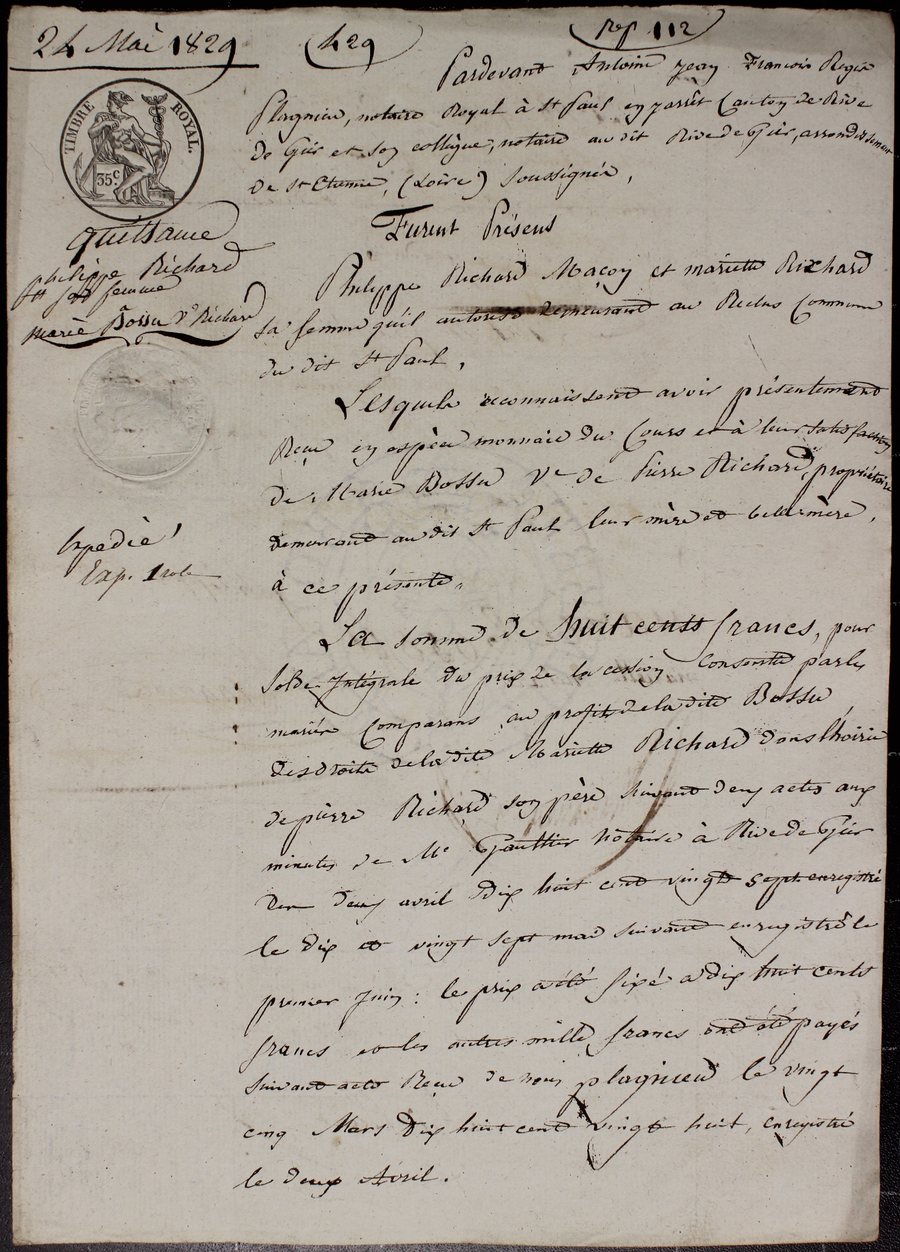 24 Mai 1829
429
rep 112
TIMBRE ROYAL.
35c
quittance
Philippe Richard
et sa femme
à
Marie Bossu Ve Richard
Expedié
Exp. 1 role
Pardevant Antoine Jean François Regis
Plagnieu, notaire Royal à St Paul en jarêt Canton de Rive
de Gier et son collègue, notaire au dit Rive de Gier, arrondissement
de St Etienne, (Loire) soussignés,
Furent Présens
Philippe Richard Maçon et mariette Richard
sa femme qu'il autorise demeurant au Reclus Commune
du dit St Paul,
Lesquels reconnaissent avoir présentement
Reçu en espèces monnaie du Cours et à leur satisfaction
de Marie Bossu Ve de Pierre Richard, propriétaire
demeurant au dit St Paul leur mère et belle mère,
à ce présente,
La somme de huit cents francs, pour
solde Intégrale du prix de la cession Consentie par les
mariés Comparans au profit de la dite Bossu
des droits de la dite Mariette Richard dans l'hoirie
de pierre Richard son père suivant deux actes aux
minutes de Me Gaultier Notaire à Rive de Gier
des deux avril dix huit cent vingt sept enregistré
le dix et vingt sept mai suivant enregistré le
premier Juin : le prix a été fixé à dix huit cents
francs et les autres mille francs ont été payés
suivant acte Reçu de nous plagnieu le vingt
cinq Mars dix huit cent vingt huit, enregistré
le deux Avril.